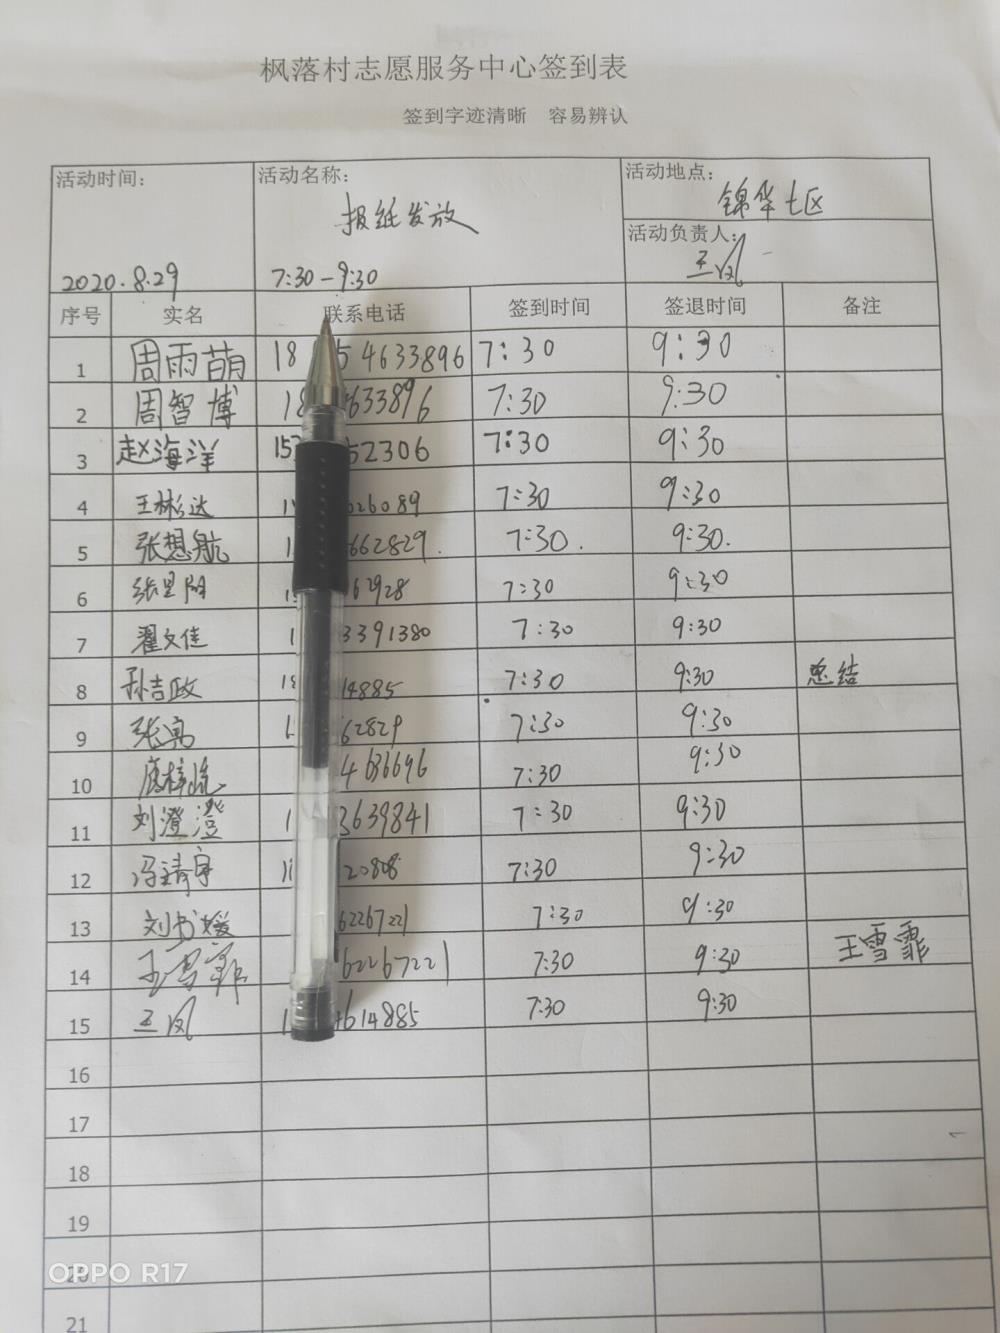 枫落村志愿服务中心签到表
签到字迹清晰 容易辨认
活动时间: 活动名称: 活动地点:
报纸发放 锦华七区
活动负责人:
王凤
2020.8.29 7:30-9:30
序号 实名 联系电话 签到时间 签退时间 备注
1 周雨萌 18 54633896 7:30 9:30
2 周智博 18 633896 7:30 9:30
3 赵海洋 153 52306 7:30 9:30
4 王彬达 1 026089 7:30 9:30
5 张想航 1 662829. 7:30. 9:30.
6 62928 7:30 9:30
7 翟文佳 1 3391380 7:30 9:30
8 孙吉政 18 14885 7:30 9:30 总结
9 1 62829 7:30 9:30
10 4686696 7:30 9:30
11 刘澄澄 1 3639841 7:30 9:30
12 冯靖宇 1 20808 7:30 9:30
13 刘书媛 62267221 7:30 9:30
14 王雪霏 62267221 7:30 9:30 王雪霏
15 王凤 1 614885 7:30 9:30
16
17
18
19
20
21
OPPO R17